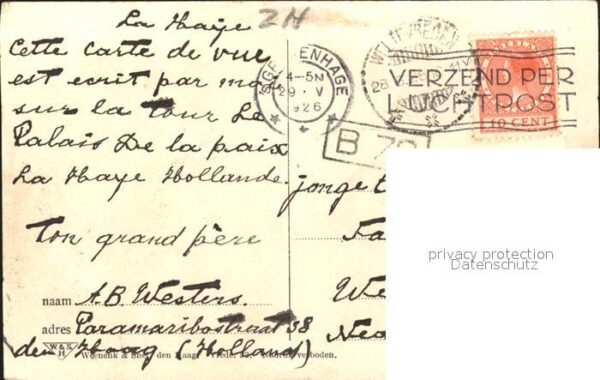 La Haye 2H
Cette carte de vue
est ecrit par moi
sur la tour Le
Palais De la paix
La Haye Hollande.
ton grand père
naam A.B. Westers.
adres Paramaribostraat 38
den Haag (Holland)
W&S
H
Weenenk & Snel, den Haag
verboden.
'S GRAVENHAGE
4-5N
29 · V
1926
WELTEVREDEN
VERZEND PER
LUCHTPOST
10 CENT
B 70
jonge
privacy protection
Datenschutz